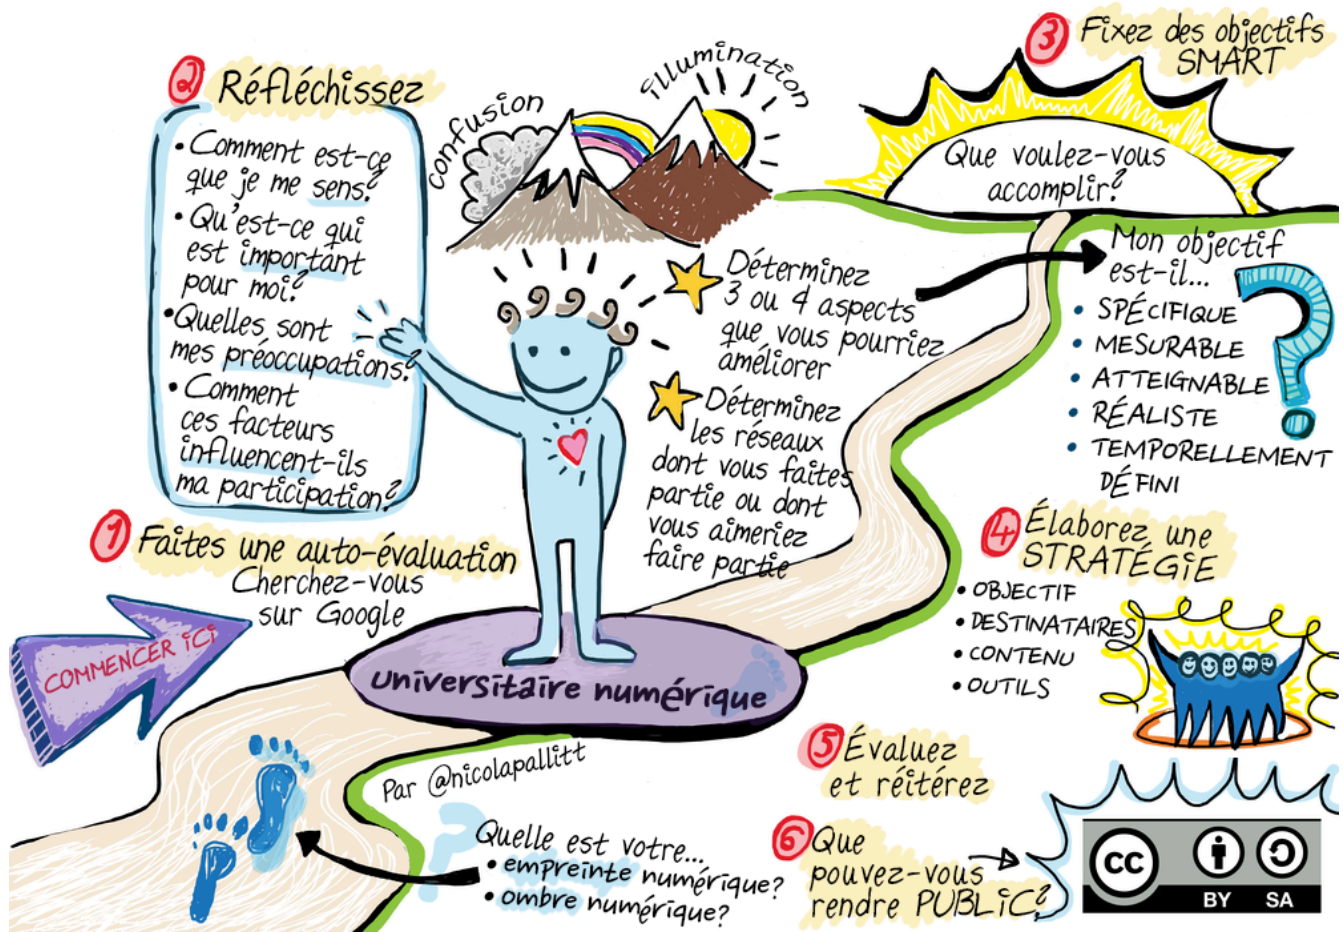 COMMENCER ICI
1 Faites une auto-évaluation
Cherchez-vous
sur Google
2 Réfléchissez
• Comment est-ce
que je me sens?
• Qu'est-ce qui
est important
pour moi?
• Quelles sont
mes préoccupations?
• Comment
ces facteurs
influencent-ils
ma participation?
confusion
illumination
Déterminez
3 ou 4 aspects
que vous pourriez
améliorer
Déterminez
les réseaux
dont vous faites
partie ou dont
vous aimeriez
faire partie
universitaire numérique
Par @nicolapallitt
Quelle est votre...
• empreinte numérique?
• ombre numérique?
3 Fixez des objectifs
SMART
Que voulez-vous
accomplir?
Mon objectif
est-il...
• SPÉCIFIQUE
• MESURABLE
• ATTEIGNABLE
• RÉALISTE
• TEMPORELLEMENT
DÉFINI
?
4 Élaborez une
STRATÉGIE
• OBJECTIF
• DESTINATAIRES
• CONTENU
• OUTILS
5 Évaluez
et réitérez
6 Que
pouvez-vous
rendre PUBLIC?
cc
BY SA